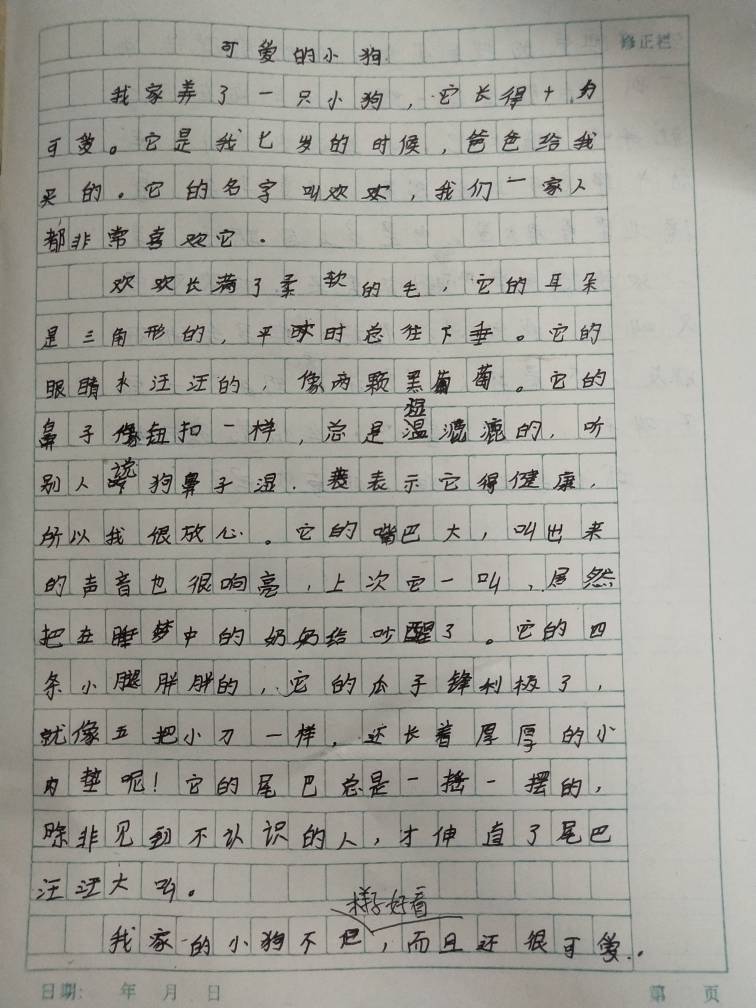 可爱的小狗
修正栏
我家养了一只小狗，它长得十分
可爱。它是我七岁的时候，爸爸给我
买的。它的名字叫欢欢，我们一家人
都非常喜欢它。
欢欢长满了柔软的毛，它的耳朵
是三角形的，平时总往下垂。它的
眼睛水汪汪的，像两颗黑葡萄。它的
鼻子像钮扣一样，总是湿漉漉的，听
别人说狗鼻子湿，表示它得健康，
所以我很放心。它的嘴巴大，叫出来
的声音也很响亮，上次它一叫，居然
把在睡梦中的奶奶给吵醒了。它的四
条小腿胖胖的，它的爪子锋利极了，
就像五把小刀一样，还长着厚厚的小
肉垫呢！它的尾巴总是一摇一摆的，
除非见到不认识的人，才伸直了尾巴
汪汪大叫。
样子好看
我家的小狗不但，而且还很可爱。
日期： 年 月 日 第 页